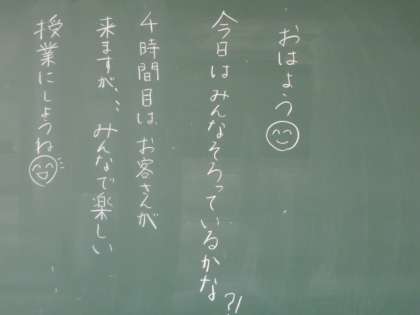 おはよう
今日はみんなそろっているかな?!
4時間目は、お客さんが
来ますが、、、みんなで楽しい
授業にしようね